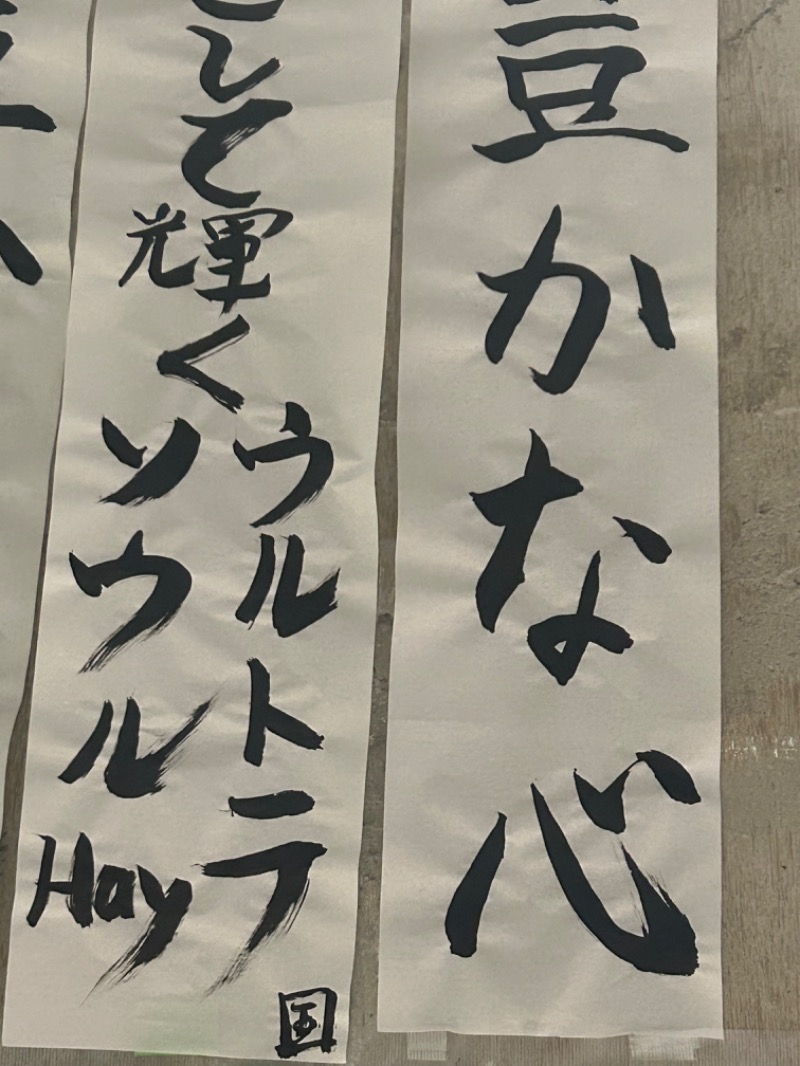 豊かな心
して輝く
ウルトラ
ソウル
Hay
国